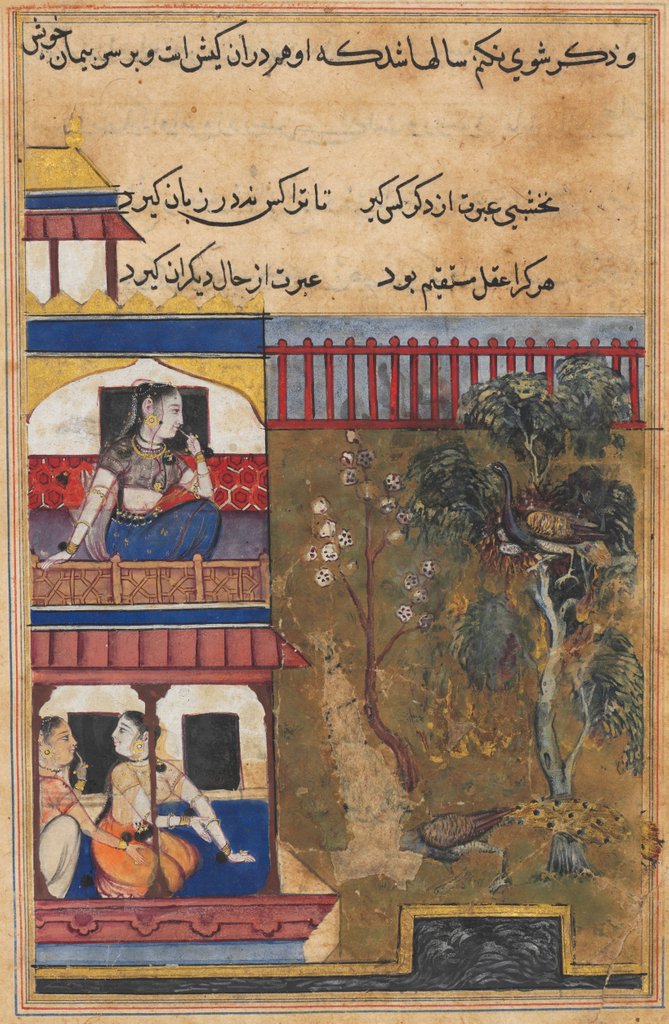 و ذکر شوی نکنم سالها شد که او هم در ان کیش است و بر سر پیمان خویش
نخشبی عبرت از دکر کس کیر تا ترا کس نه در زبان کیرد
هر کرا عقل مستقیم بود عبرت از حال دیکران کیرد